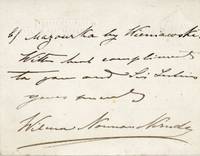 6/ Mazourka by Wieniawski.
With best compliments
to you and
yours sincerely
Wilma Norman Neruda